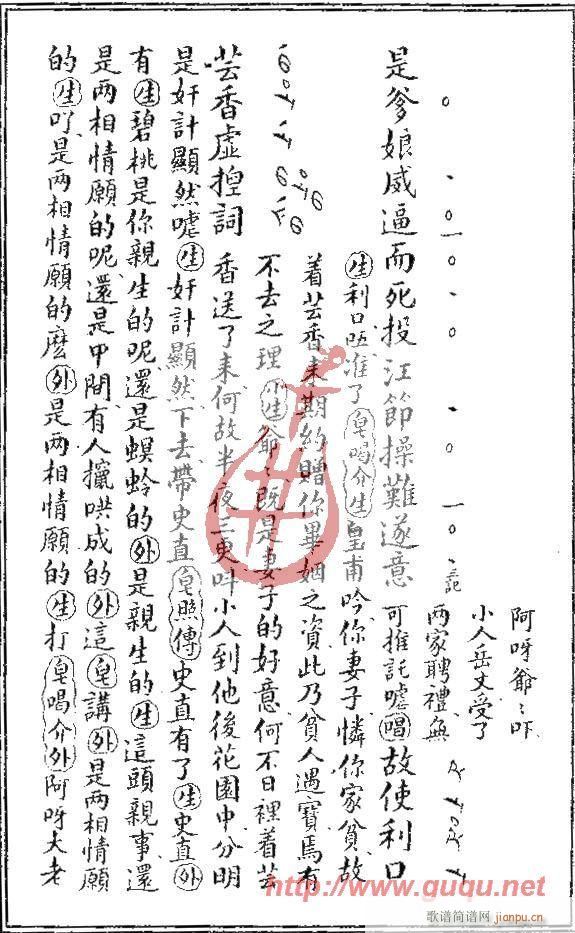 是爹娘威逼而死投江節操難遂意
阿呀爺〻吓
小人岳丈受了
兩家聘禮無
可推託噓唱故使利口
生利口既准了皂喝介生皇甫吟你妻子憐你家貧故
着芸香來期約贈你畢姻之資此乃貧人遇寶焉有
不去之理小生爺〻既是妻子的好意何不日裡着芸
芸香虛揑詞
香送了來何故半夜三更呌小人到他後花園中分明
是奸計顯然噓生奸計顯然下去帶史直皂照傳史直有了生史直外
有生碧桃是你親生的呢還是螟蛉的外是親生的生這頭親事還
是兩相情願的呢還是中間有人攛哄成的外這皂講外是兩相情願
的生吖是兩相情願的麽外是兩相情願的生打皂喝介外阿呀大老
http://www.guqu.net
歌谱简谱网
jianpu.cn